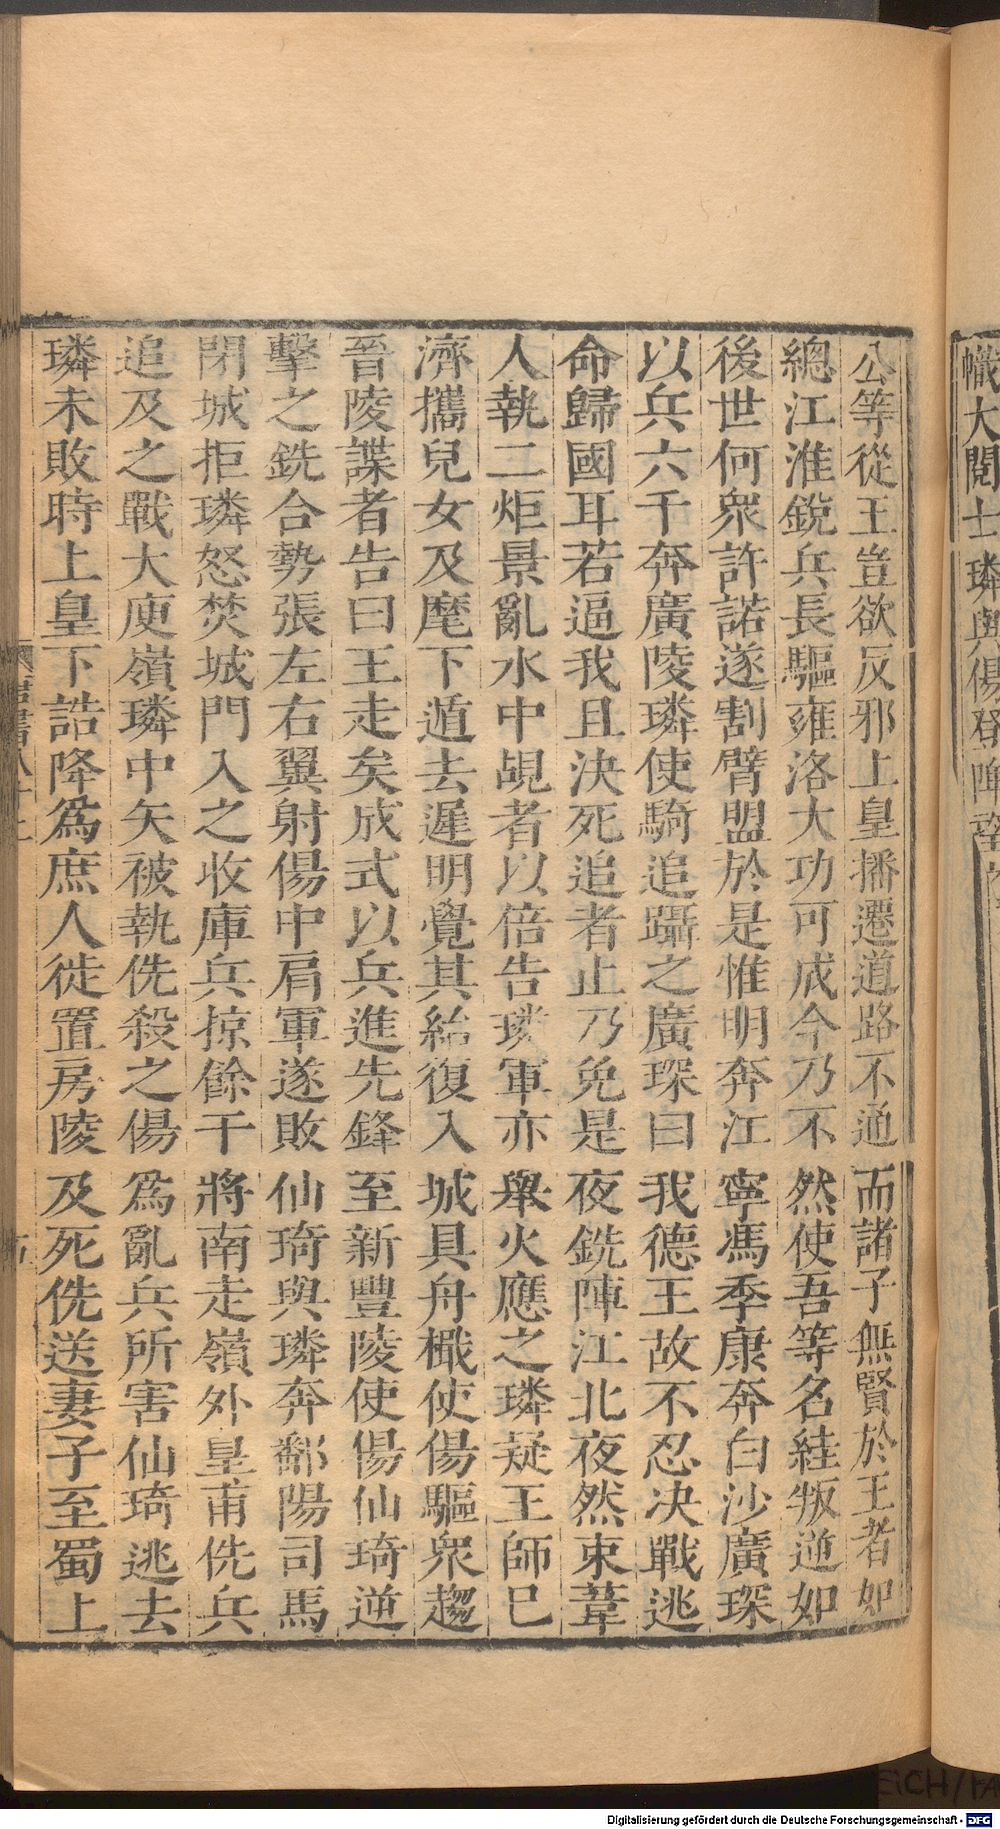 幟大閱士璘與傷登陴望
公等從王豈欲反邪上皇播遷道路不通而諸子無賢於王者如
總江淮銳兵長驅雍洛大功可成今乃不然使吾等名絓叛逆如
後世何衆許諾遂割臂盟於是惟明奔江寧馮季康奔白沙廣琛
以兵六千奔廣陵璘使騎追躡之廣琛曰我德王故不忍决戰逃
命歸國耳若逼我且決死追者止乃免是夜銑陣江北夜然束葦
人執二炬景亂水中覘者以倍告璘軍亦舉火應之璘疑王師已
濟攜兒女及麾下遁去遲明覺其紿復入城具舟檝使傷驅衆趨
晉陵諜者告曰王走矣成式以兵進先鋒至新豐陵使傷仙琦逆
擊之銑合勢張左右翼射傷中肩軍遂敗仙琦與璘奔鄱陽司馬
閉城拒璘怒焚城門入之收庫兵掠餘干將南走嶺外皇甫侁兵
追及之戰大庾嶺璘中矢被執侁殺之傷爲亂兵所害仙琦逃去
璘未敗時上皇下誥降爲庶人徙置房陵及死侁送妻子至蜀上
Digitalisierung gefördert durch die Deutsche Forschungsgemeinschaft - DFG